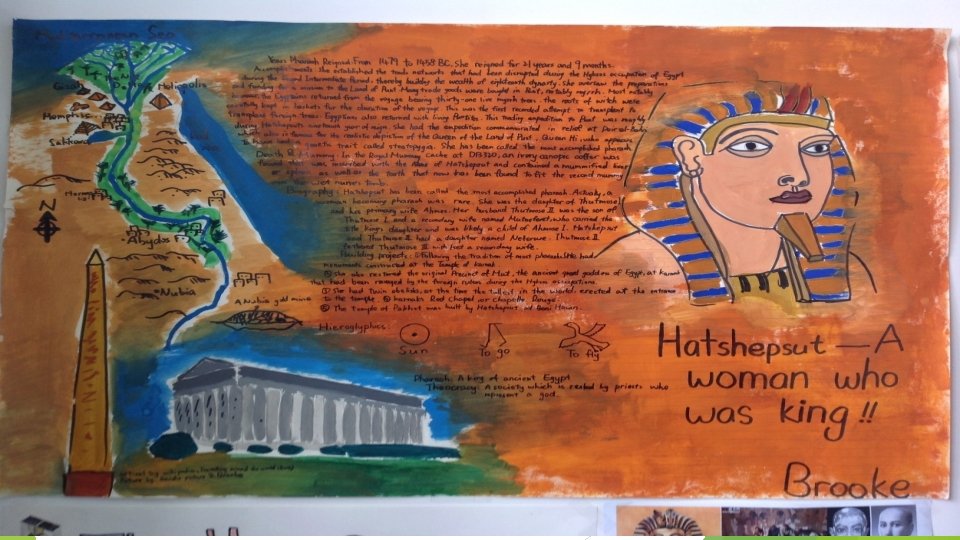 Mediterranean Sea
Giza
Heliopolis
Memphis
Sakkara
Abydos
Nubia
A Nubia gold mine
Years Pharaoh Reigned From 1479 to 1458 BC. She reigned for 21 years and 9 months.
Accomplishments: She established the trade networks that had been disrupted during the Hyksos occupation of Egypt
during the Second Intermediate Period, thereby building the wealth of eighteenth dynasty. She oversaw the preparations
and funding for a mission to the Land of Punt. Many trade goods were bought in Punt, notably myrrh. Most notably
the Egyptians returned from the voyage bearing thirty-one live myrrh trees. The roots of which were
carefully kept in baskets for the duration of the voyage. This was the first recorded attempt to transplant
trees. Egyptians also returned with living Puntites. This trading expedition to Punt was roughly
during Hatshepsut's nineteenth year of reign. She had the expedition commemorated in relief at Deir el-Bahri
which also is famous for its realistic depiction of the Queen of the Land of Punt
to have had a genetic trait called steatopygia. She has been called the most accomplished pharaoh.
Death & Mummy: In the Royal Mummy Cache at DB320, an ivory canopic coffer was
found that was inscribed with the name of Hatshepsut and contained a mummified liver
or spleen as well as the tooth that now has been found to fit the second mummy
wet nurse's tomb.
Biography: Hatshepsut has been called the most accomplished pharaoh. Actually, a
woman becoming pharaoh was rare. She was the daughter of Thutmose I
and his primary wife Ahmes. Her husband Thutmose II was the son of
Thutmose I and a secondary wife named Mutnofret, who carried the
title king's daughter and was likely a child of Ahmose I. Hatshepsut
and Thutmose II had a daughter named Neferure. Thutmose II
fathered Thutmose III with had a secondary wife.
Building projects: Following the tradition of most pharaohs, She had
monuments constructed at the Temple of Karnak
She also restored the original Precinct of Mut, the ancient great goddess of Egypt, at Karnak
that had been ravaged by the foreign rulers during the Hyksos occupations.
She had twin obelisks, at the time the tallest in the world, erected at the entrance
to the temple. Karnak's Red Chapel or Chapelle Rouge.
The Temple of Pakhet was built by Hatshepsut at Beni Hasan.
Hieroglyphics:
Sun
To go
To fly
Pharaoh: A king of ancient Egypt
Theocracy: A society which is ruled by priests who
represent a god.
Hatshepsut — A
woman who
was king!!
Brooke